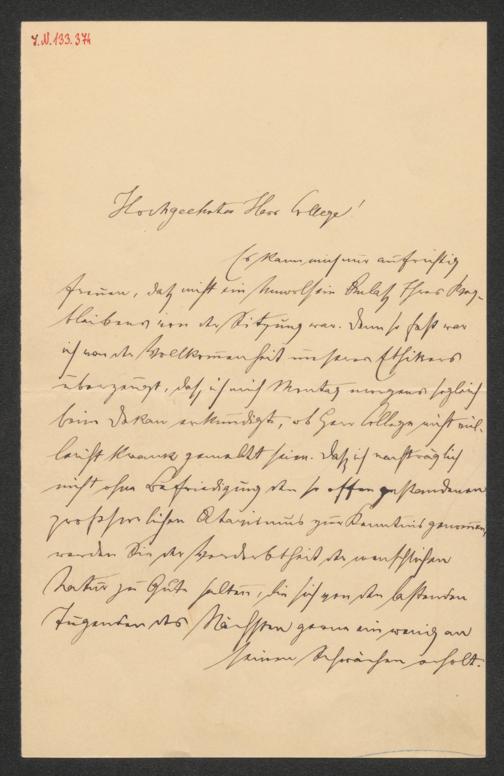 I.N. 133.374
Hochgeehrter Herr College!
Es kann mich nur aufrichtig
freuen, daß nicht ein Unwohlsein Anlaß Ihres Weg-
bleibens von der Sitzung war. Denn so fest war
ich von der Vollkommenheit unseres Ethikers
überzeugt, daß ich mich Montag morgens sogleich
beim Dekan erkundigte, ob Herr College nicht viel-
leicht krank gemeldet seien. Daß ich nachträglich
nicht ohne Befriedigung den so offen gestandenen
professorlichen Atavismus zur Kenntnis genommen,
werden Sie der Verderbtheit der menschlichen
Natur zu Gute halten, die sich von den lastenden
Tugenden des Nächsten gerne ein wenig an
seinen Schwächen erholt.